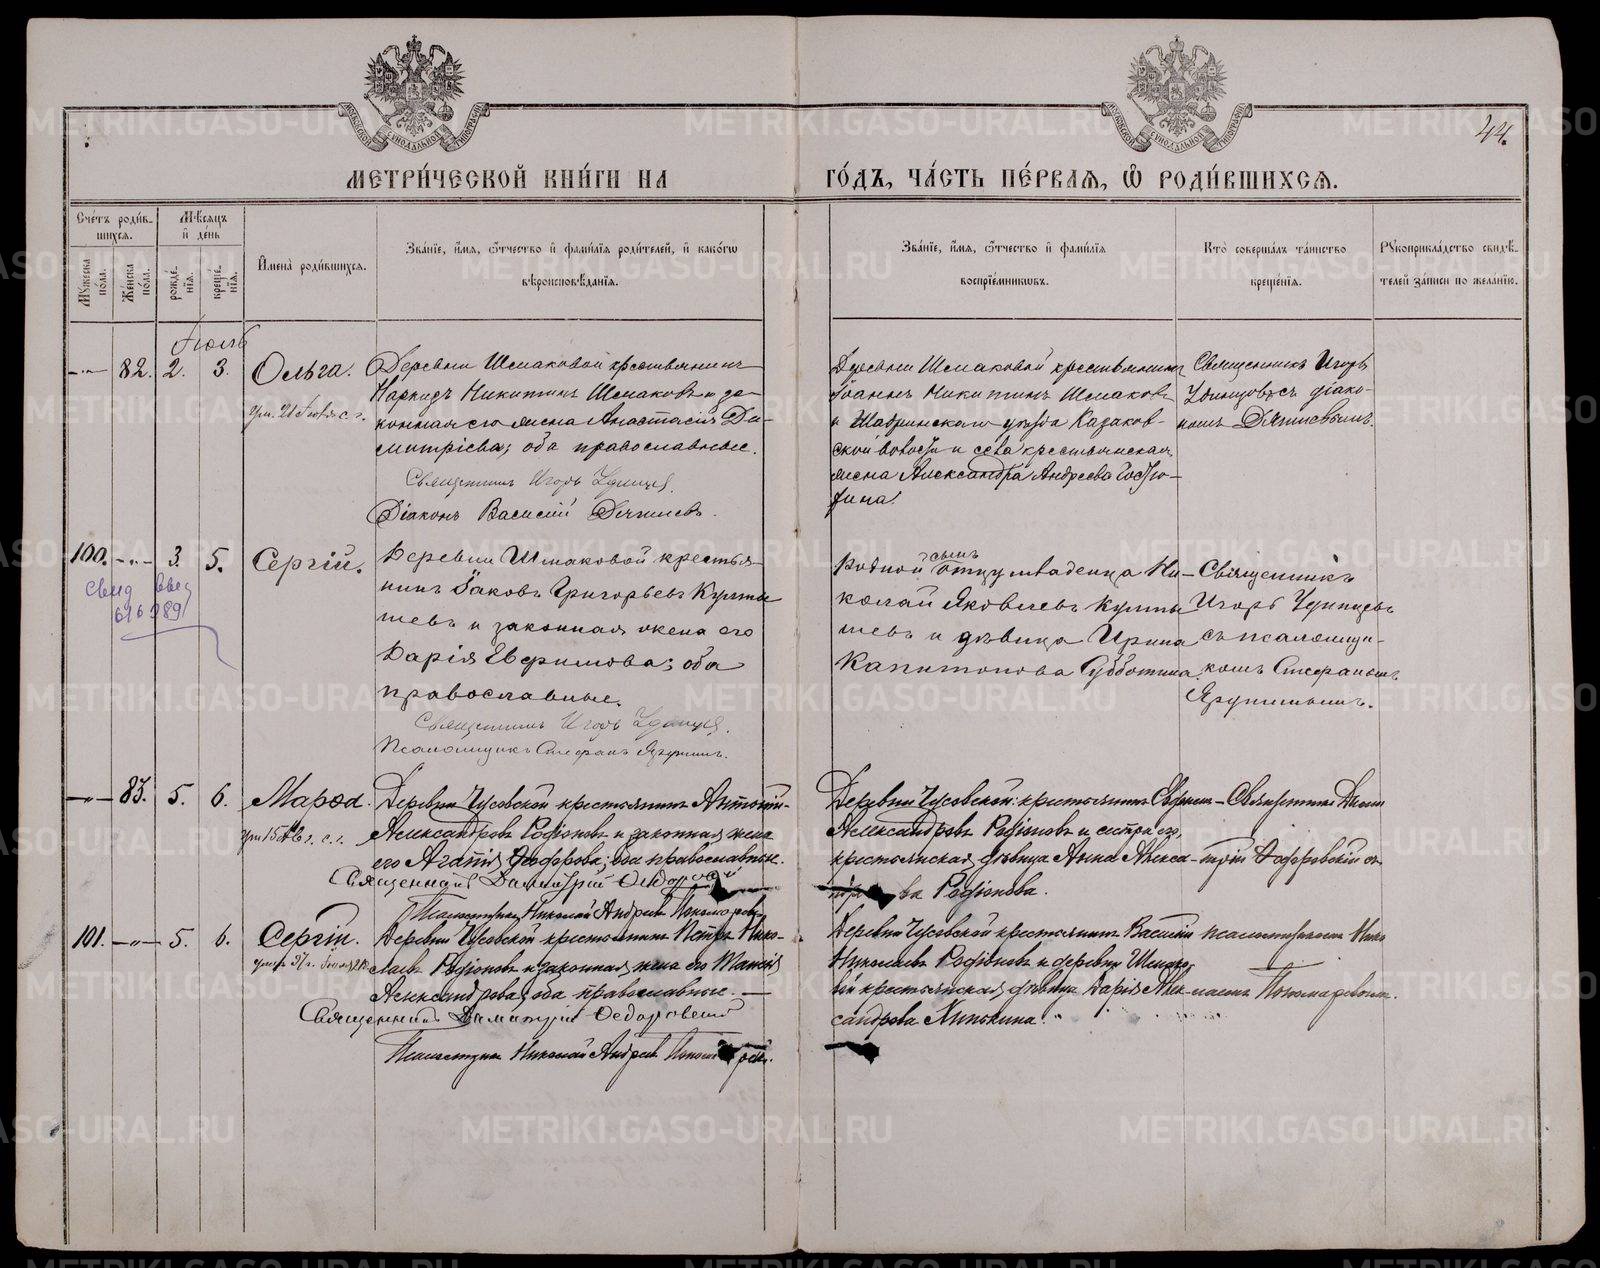 44.
МЕТРИ́ЧЕСКОЙ КНИ́ГИ НА ГО́ДЪ, ЧА́СТЬ ПЕ́РВАЯ, Ѽ РОДИ́ВШИХСѦ.
Сче́тъ роди́в-
шихсѧ.
Мѣсѧцъ
и҆ де́нь
Мꙋжеска по́ла.
Же́нска по́ла.
рожде́-
нїѧ.
креще́-
нїѧ.
И҆мена̀ роди́вшихсѧ.
Зва́нїе, и҆́мѧ, ѻ҆́тчество и҆ фами́лїѧ роди́телей, и҆ како́гѡ
вѣроисповѣ́данїѧ.
Зва́нїе, и҆́мѧ, ѻ҆́тчество и҆ фами́лїѧ
воспрїе́мниковъ.
Кто̀ соверша́лъ та́инство
креще́нїѧ.
Рꙋкоприкла́дство свидѣ́-
телей за́писи по жела́нїю.
Іюль
82. 2. 3. Ольга.
Деревни Шмаковой крестьянинъ
Никитинъ Шмаковъ и за-
конная его жена Анастасія Ди-
митріева; оба православные.
Священникъ Игорь Удинцев.
Діаконъ Василій
Деревни Шмаковой крестьянинъ
Іоаннъ Никитинъ Шмаковъ
и Шадринскаго уѣзда Казаков-
ской волости и села крестьянская
жена Александра Андреева
Священникъ Игорь
Удинцовъ съ діако-
номъ
100. 3. 5. Сергій.
свид введ
616989
Деревни Шмаковой крестья-
нинъ Іаковъ Григорьевъ Култы
шевъ и законная жена его
Дарія Евфимова; оба
православные.
Священникъ Игорь Удинцев.
Псаломщикъ Стефанъ
Родной сынъ отцу младенца Ни-
колай Яковлевъ Култы
шевъ и дѣвица Ирина
Капитонова Субботина.
Священникъ
Игорь Удинцевъ
съ псаломщи-
комъ Стефаномъ
83. 5. 6. Марѳа.
Деревни Чусовской крестьянинъ
Александровъ Родіоновъ и законная жена
его Агапія Ѳодорова; оба православные.
Священникъ Димитрій Ѳедоровскій
Псаломщикъ Николай Андреевъ Пономаревъ
Деревни Чусовской крестьянинъ
Александровъ Родіоновъ и сестра его,
крестьянская дѣвица Анна Алекса-
Родіонова.
Священникъ Дими-
трій Ѳедоровскій съ
101. 5. 6. Сергій.
Деревни Чусовской крестьянинъ Петръ Нико-
лаевъ Родіоновъ и законная жена его
Александрова; оба православные.
Священникъ Димитрій Ѳедоровскій
Псаломщикъ Николай Андреевъ
Деревни Чусовской крестьянинъ Василій
Николаевъ Родіоновъ и деревни Шмако-
вой крестьянская дѣвица Дарія Алек-
сандрова
псаломщикомъ Нико-
лаемъ Пономаревымъ.
METRIKI.GASO-URAL.RU